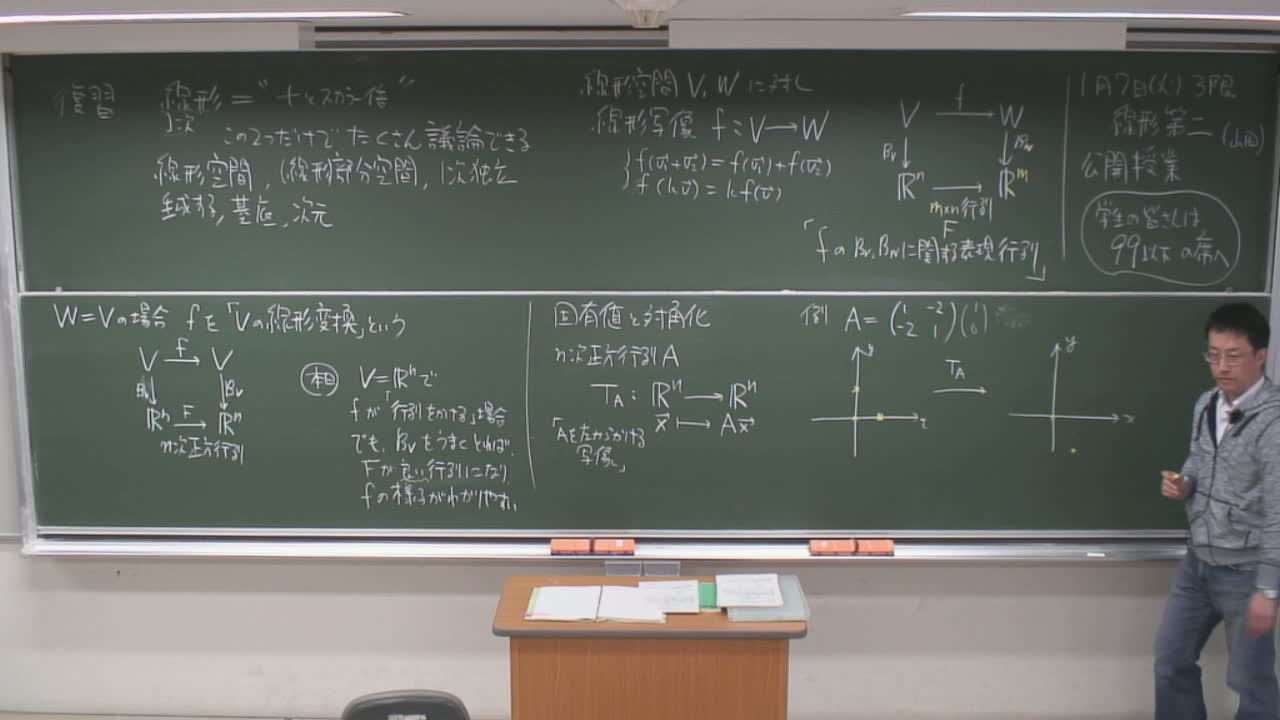 復習
線形=“+とスカラー倍”
1次
この2つだけでたくさん議論できる
線形空間, (線形)部分空間, 1次独立
生成する, 基底, 次元
線形空間 V, W に対し
線形写像 f: V→W
f(v₁+v₂)=f(v₁)+f(v₂)
f(kv)=kf(v)
V f W
Bv Bw
ℝⁿ ℝᵐ
m×n行列
F
「fのBv, Bwに関する表現行列」
1月7日(火) 3限
線形第二
(山田)
公開授業
学生の皆さんは
99以下の席へ
W=Vの場合 fを「Vの線形変換」という
V f V
Bv Bv
ℝⁿ F ℝⁿ
n次正方行列
本日
V=ℝⁿで
fが「行列をかける」場合
でも, Bvをうまくとれば,
Fが良い行列になり
fの様子がわかりやすい
固有値と対角化
n次正方行列A
T_A: ℝⁿ→ℝⁿ
x↦Ax
「Aを左からかける
写像」
例 A=(1 -2 -2 1)(1 0)
y
x
T_A
y
x